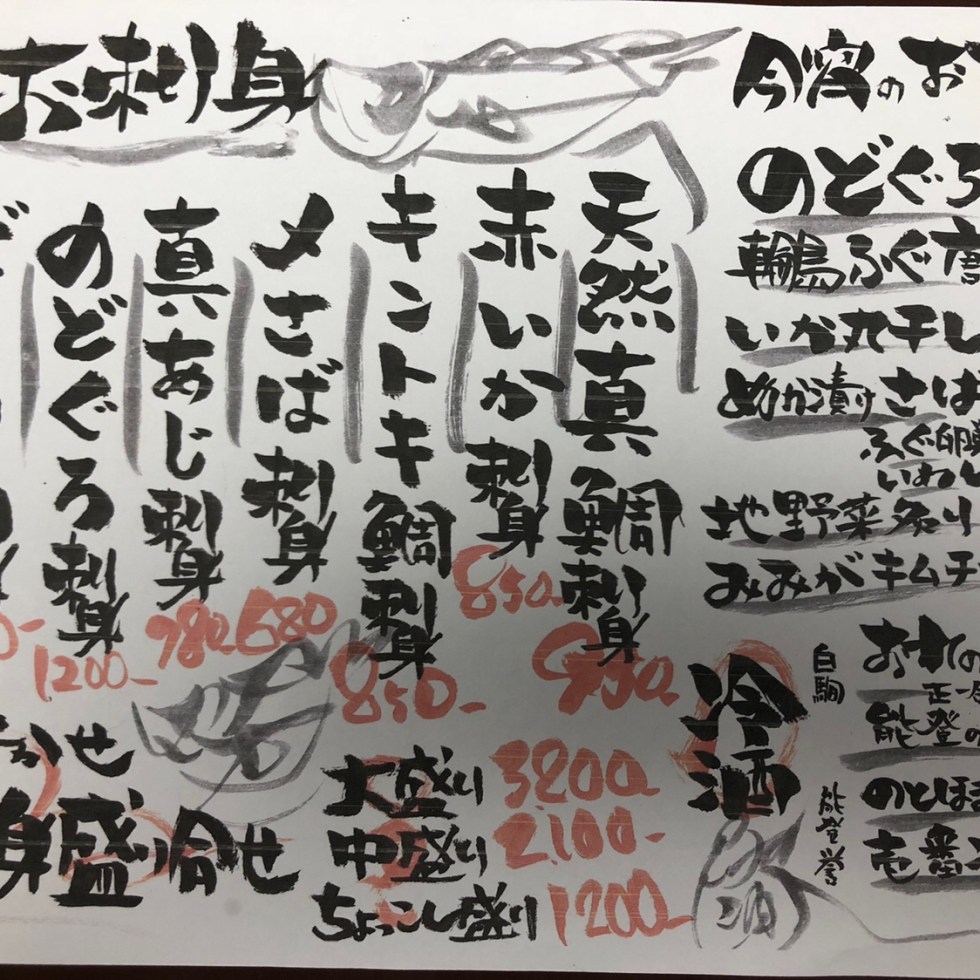 お刺り身
天然真鯛刺身
950-
赤いか刺身
850-
キントキ鯛刺身
850-
〆さば刺身
680
真あじ刺身
980-
のどぐろ刺身
1200-
かせ
身盛り合せ
大盛り 3200-
中盛り 2,100-
ちょっこし盛り 1200-
今宵のお
のどぐろ
輪島ふぐ唐
いか丸干し
ぬか漬け さば
ふぐ卵巣
いわし
地野菜炙り
みみがキムチ
冷酒
白駒
能登誉
能登の
のとほ
壱番